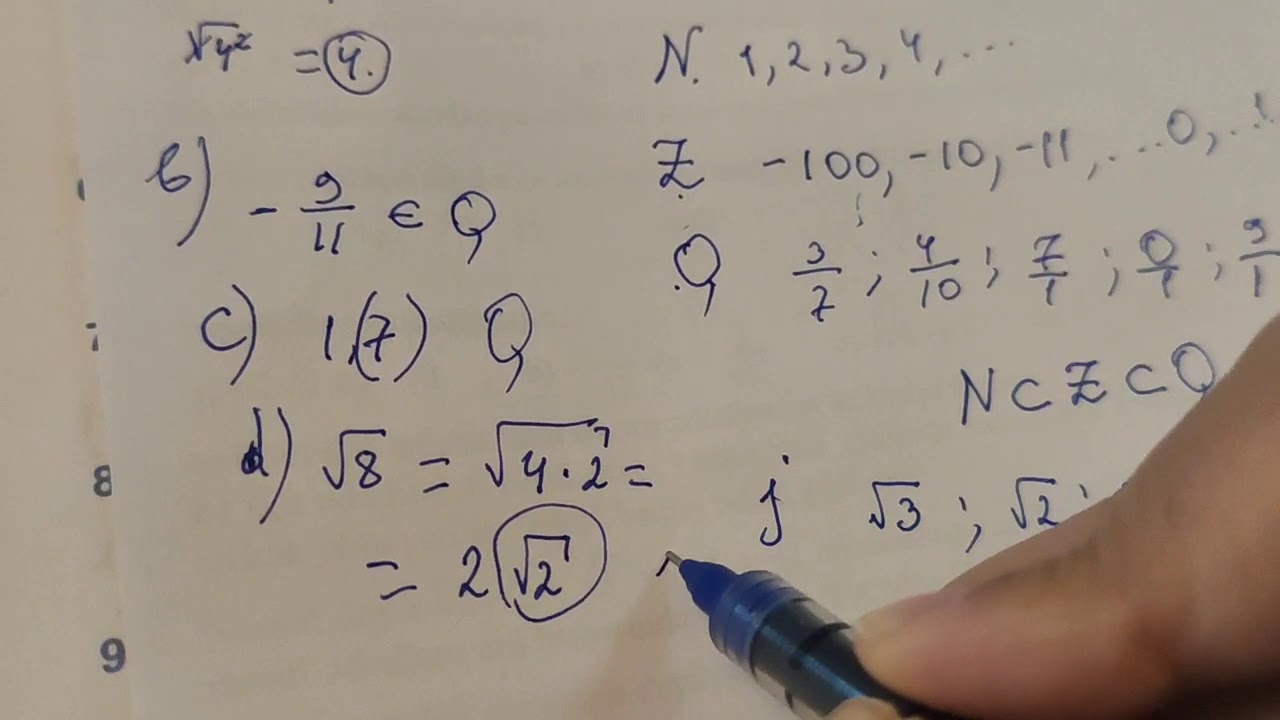 √4² = 4.
b) - 9/11 ∈ Q
c) 1,(7) Q
d) √8 = √4·2 =
= 2√2
N. 1, 2, 3, 4, ...
Z -100, -10, -11, ...0, ..1
Q 3/7 ; 4/10 ; 7/1 ; 0/1 ; 9/1
N ⊂ Z ⊂ Q
j √3 ; √2 ;
7
8
9